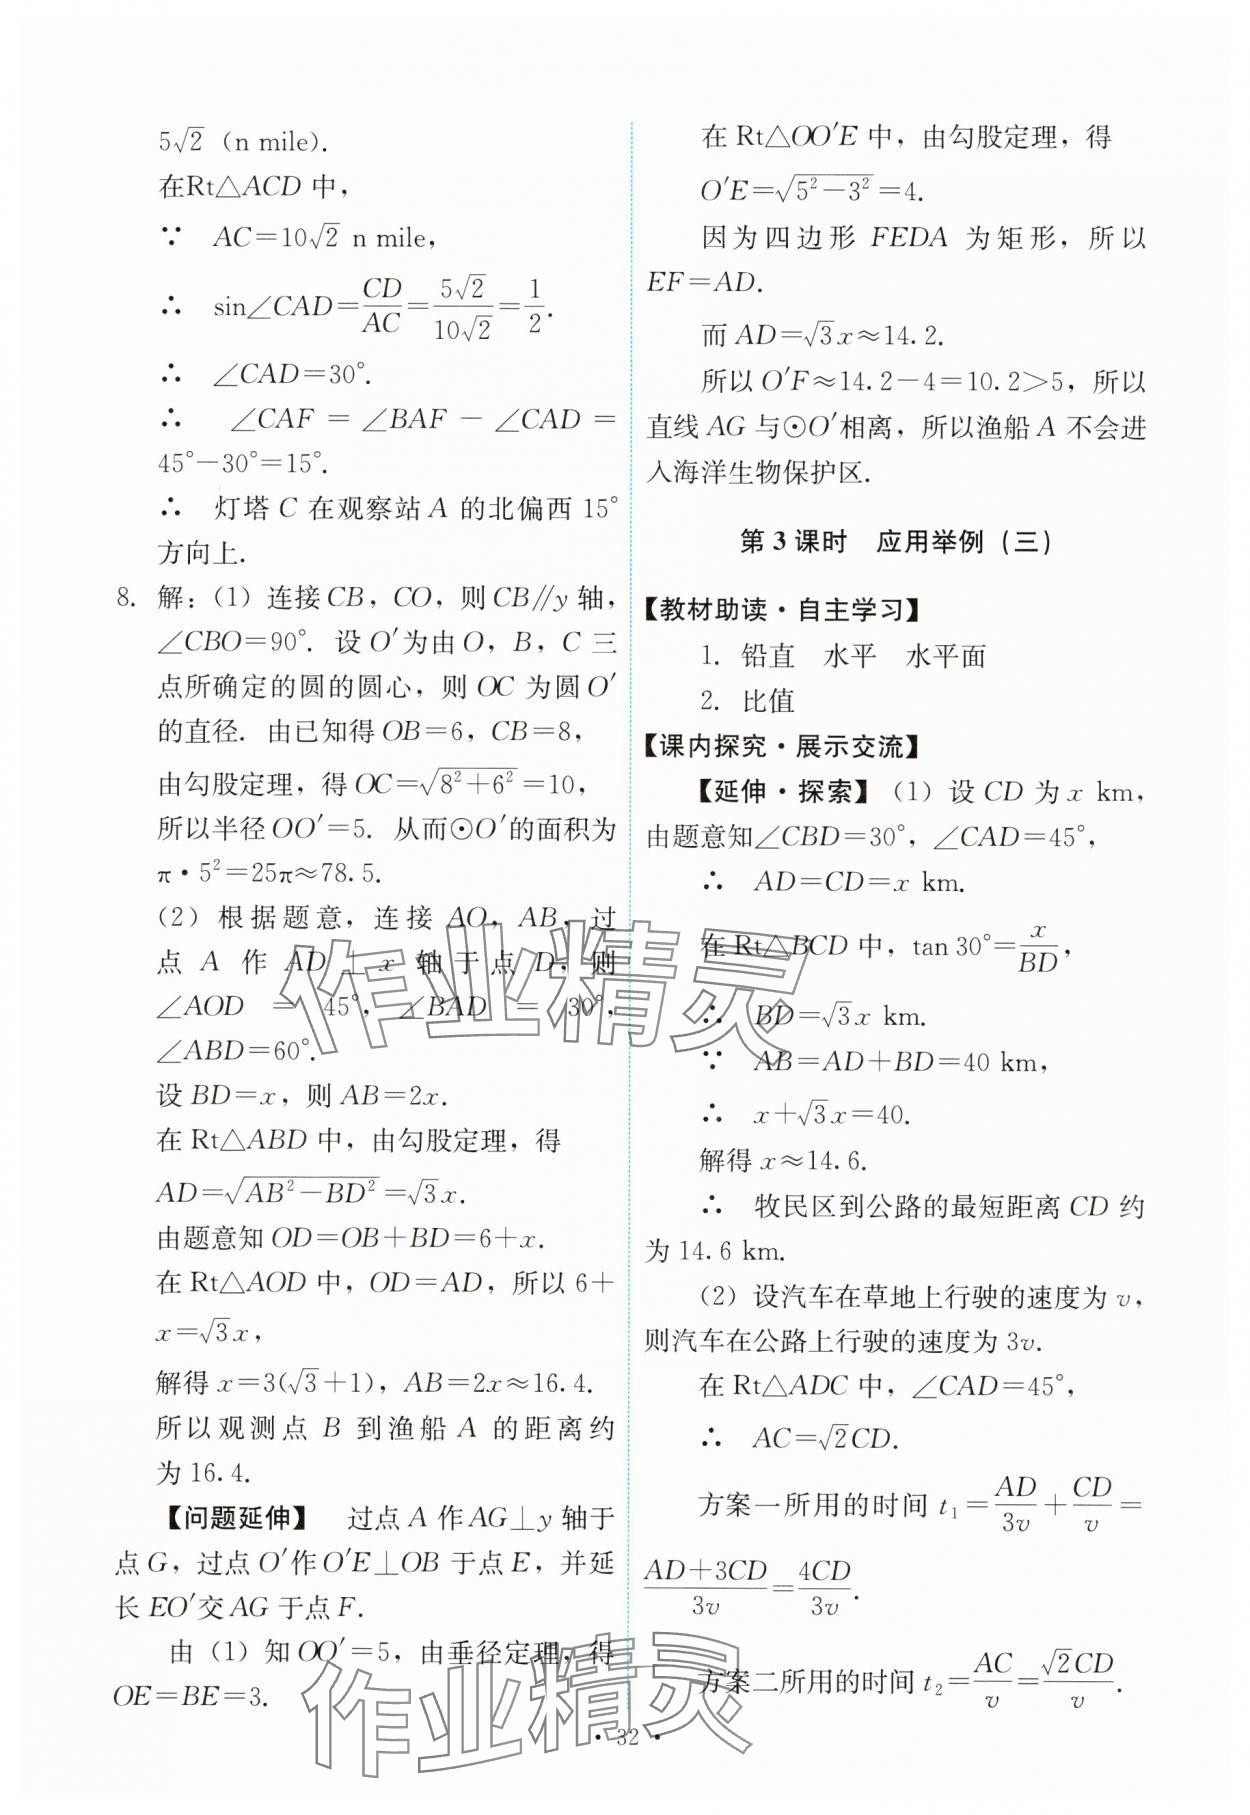 5√2 (n mile).
在Rt△ACD 中，
∵ AC=10√2 n mile，
∴ sin∠CAD=CD/AC=5√2/10√2=1/2.
∴ ∠CAD=30°.
∴ ∠CAF = ∠BAF - ∠CAD =
45°-30°=15°.
∴ 灯塔 C 在观察站 A 的北偏西 15°
方向上.
8. 解：(1) 连接 CB，CO，则 CB∥y 轴，
∠CBO=90°. 设 O′为由 O，B，C 三
点所确定的圆的圆心，则 OC 为圆 O′
的直径. 由已知得 OB=6，CB=8，
由勾股定理，得 OC=√(8²+6²)=10，
所以半径 OO′=5. 从而⊙O′的面积为
π·5²=25π≈78.5.
(2) 根据题意，连接 AO，AB，过
点 A 作 AD⊥x 轴于点 D，则
∠AOD = 45°，∠BAD = 30°，
∠ABD=60°.
设 BD=x，则 AB=2x.
在 Rt△ABD 中，由勾股定理，得
AD=√(AB²-BD²)=√3x.
由题意知 OD=OB+BD=6+x.
在 Rt△AOD 中，OD=AD，所以 6+
x=√3x，
解得 x=3(√3+1)，AB=2x≈16.4.
所以观测点 B 到渔船 A 的距离约
为 16.4.
【问题延伸】 过点 A 作 AG⊥y 轴于
点 G，过点 O′作 O′E⊥OB 于点 E，并延
长 EO′交 AG 于点 F.
由 (1) 知 OO′=5，由垂径定理，得
OE=BE=3.
在 Rt△OO′E 中，由勾股定理，得
O′E=√(5²-3²)=4.
因为四边形 FEDA 为矩形，所以
EF=AD.
而 AD=√3x≈14.2.
所以 O′F≈14.2-4=10.2>5，所以
直线 AG 与⊙O′相离，所以渔船 A 不会进
入海洋生物保护区.
第 3 课时 应用举例 (三)
【教材助读·自主学习】
1. 铅直 水平 水平面
2. 比值
【课内探究·展示交流】
【延伸·探索】(1) 设 CD 为 x km，
由题意知∠CBD=30°，∠CAD=45°，
∴ AD=CD=x km.
在 Rt△BCD 中，tan 30°=x/BD，
∴ BD=√3x km.
∵ AB=AD+BD=40 km，
∴ x+√3x=40.
解得 x≈14.6.
∴ 牧民区到公路的最短距离 CD 约
为 14.6 km.
(2) 设汽车在草地上行驶的速度为 v，
则汽车在公路上行驶的速度为 3v.
在 Rt△ADC 中，∠CAD=45°，
∴ AC=√2CD.
方案一所用的时间 t₁=AD/3v+CD/v=
(AD+3CD)/3v=4CD/3v.
方案二所用的时间 t₂=AC/v=√2CD/v.
· 32 ·
作业精灵
作业精灵